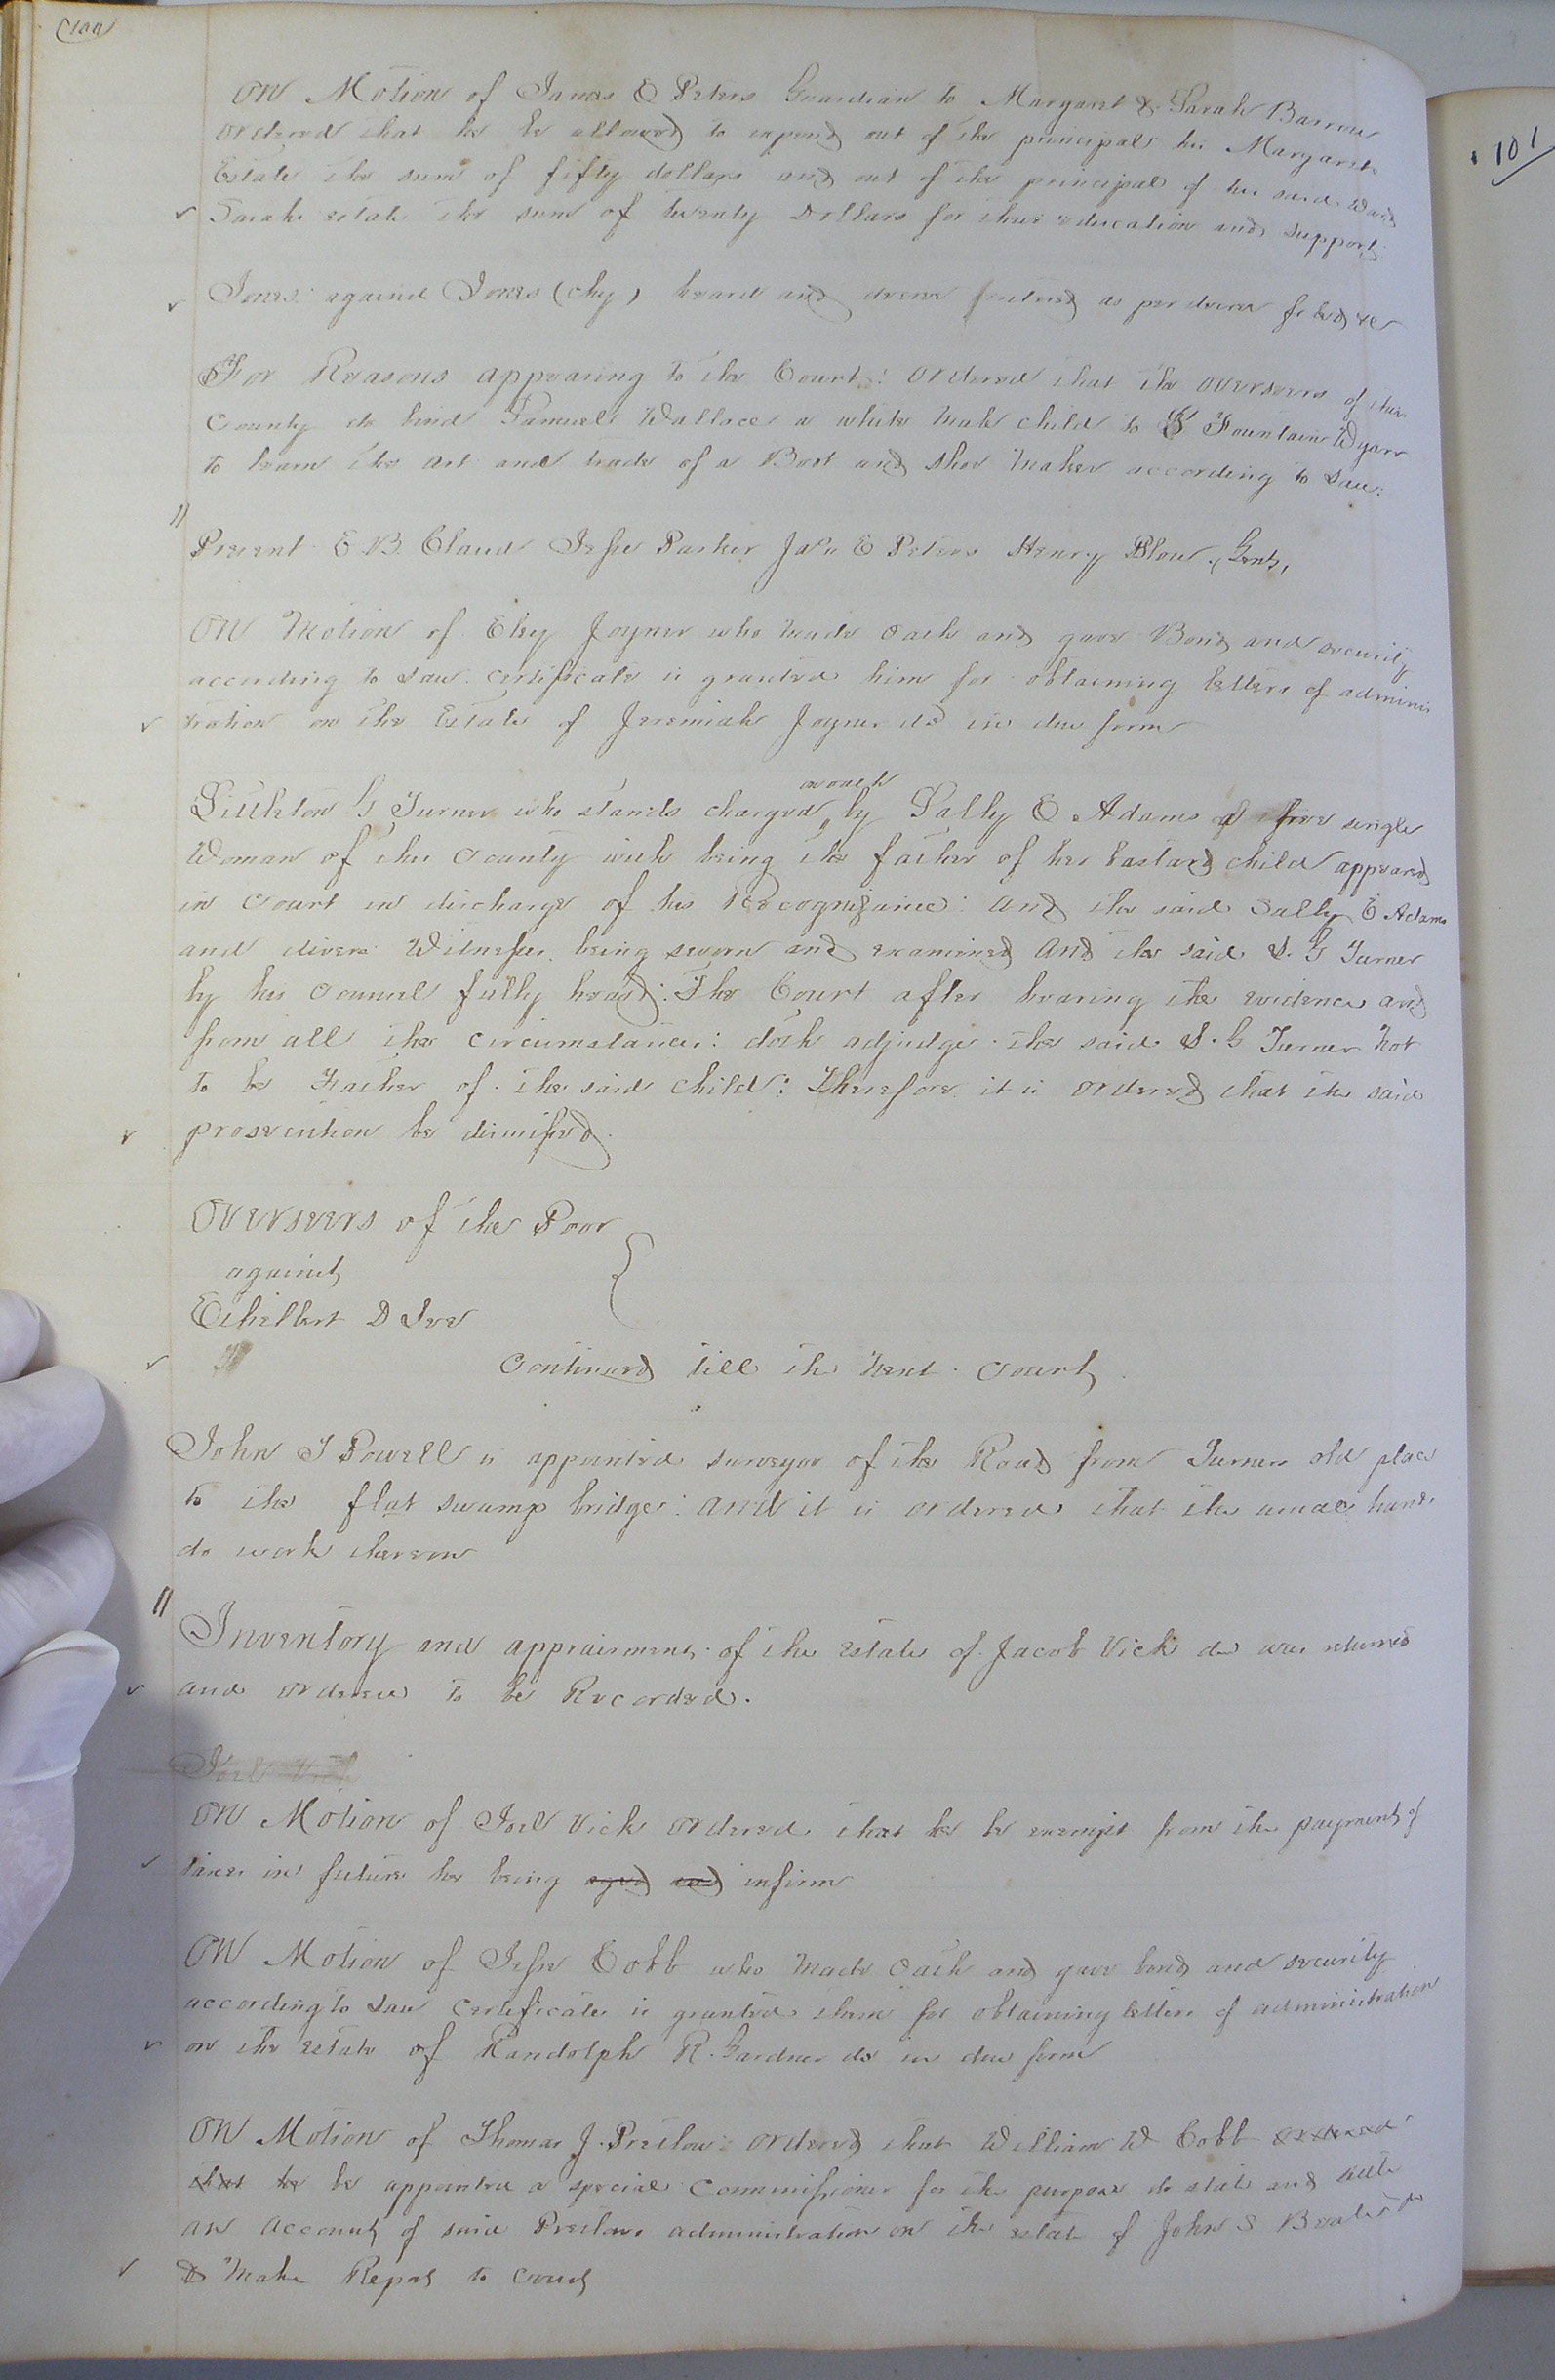 100
101
On Motion of James E Peters Guardian to Margaret & Sarah Barrow
ordered that he be allowed to expend out of the principal his Margarets
Estate the sum of fifty dollars and out of the principal of his said Ward
Sarahs estate the sum of twenty Dollars for their education and support.
Jones against Jones (Chy) heard and decree entered as per decree filed &c
For Reasons appearing to the Court: ordered that the overseers of this
County do bind Samuel Wallace a white male child to Fountain Wyarr
to learn the art and trade of a Boot and Shoe Maker according to Law:
Present E B. Claud Jesse Parker Jas. E Peters Henry Blow. Gents,
On Motion of Eley Joyner who made Oath and gave Bond and security
according to Law. certificate is granted him for obtaining letters of adminis
tration on the Estate of Jeremiah Joyner dd in due form
Littleton G Turner who stands charged on oath by Sally E Adams a free single
Woman of this County with being the father of her bastard child appeared
in Court in discharge of his Recognizance: and the said Sally E Adams
and divers Witnesses being sworn and examined and the said L. G Turner
by his Councel fully heard: The Court after hearing the evidence and
from all the circumstances: doth adjudge the said L. G Turner not
to be Father of the said child: Therefore it is ordered that the said
prosecution be dimissed.
Overseers of the Poor
against
Ethelbert D Ivs
Continued till the next Court.
John T Powell is appointed surveyor of the Road from Turners old place
to the flat swamp bridge: and it is ordered that the usual hands
do work thereon
Inventory and appraisment of the estate of Jacob Vick dd was returned
and ordered to be Recorded.
Joel Vick
On Motion of Joel Vick ordered that he be exempt from the payment of
taxes in future he being aged and infirm
On Motion of Jesse Cobb who made Oath and gave bond and security
according to Law certificate is granted him for obtaining letters of administration
on the estate of Randolph R. Gardner dd in due form
On Motion of Thomas J. Pretlow: ordered that William W Cobb ordered
that he be appointed a special Commissioner for the purpose to state and settle
an account of said Pretlows administration on the estate of John S Beale dd
& Make Report to Court